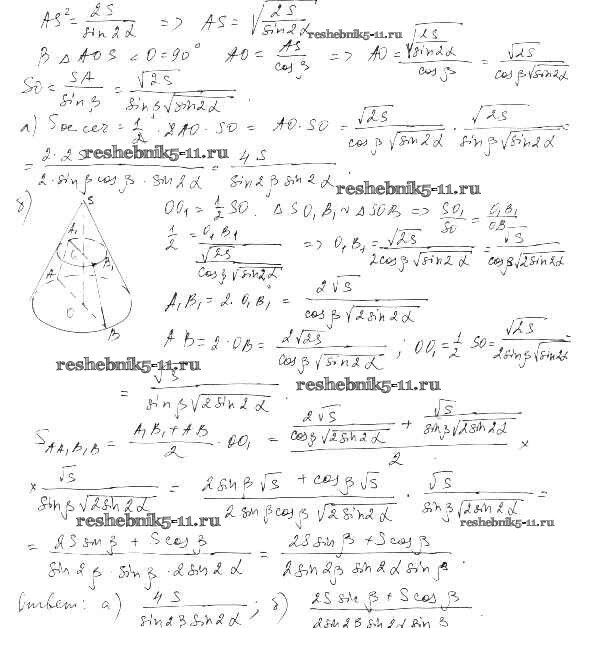 AS² = 2S / sin2α => AS = √(2S / sin2α)
reshebnik5-11.ru
В △AOS ∠O = 90° AO = AS / cosβ => AO = √(2S / sin2α) / cosβ = √2S / (cosβ √sin2α)
SO = SA / sinβ = √2S / (sinβ √sin2α).
а) Sос.сеч = 1/2 · 2AO · SO = AO · SO = √2S / (cosβ √sin2α) · √2S / (sinβ √sin2α) =
= 2 · 2S / (2 · sinβ cosβ · sin2α) = 4S / (sin2β sin2α).
reshebnik5-11.ru
reshebnik5-11.ru
б) OO₁ = 1/2 SO. △SO₁B₁ ~ △SOB => SO₁ / SO = O₁B₁ / OB
S
A₁
B₁
A
O
B
1/2 = O₁B₁ / (√2S / (cosβ √sin2α)) => O₁B₁ = √2S / (2cosβ √sin2α) = √S / (cosβ √2sin2α)
A₁B₁ = 2 · O₁B₁ = 2√S / (cosβ √2sin2α)
AB = 2 · OB = 2√2S / (cosβ √sin2α); OO₁ = 1/2 SO = √2S / (2sinβ √sin2α) =
reshebnik5-11.ru
reshebnik5-11.ru
= √S / (sinβ √2sin2α).
S AA₁B₁B = (A₁B₁ + AB) / 2 · OO₁ = (2√S / (cosβ √2sin2α) + √S / (sinβ √2sin2α)) / 2 ×
× √S / (sinβ √2sin2α) = (2sinβ √S + cosβ √S) / (2sinβ cosβ √2sin2α) · √S / (sinβ √2sin2α) =
reshebnik5-11.ru
reshebnik5-11.ru
= (2S sinβ + S cosβ) / (sin2β · sinβ · 2sin2α) = (2S sinβ + S cosβ) / (2sin2β sin2α sinβ).
Ответ: а) 4S / (sin2β sin2α); б) (2S sinβ + S cosβ) / (2sin2β sin2α sinβ).